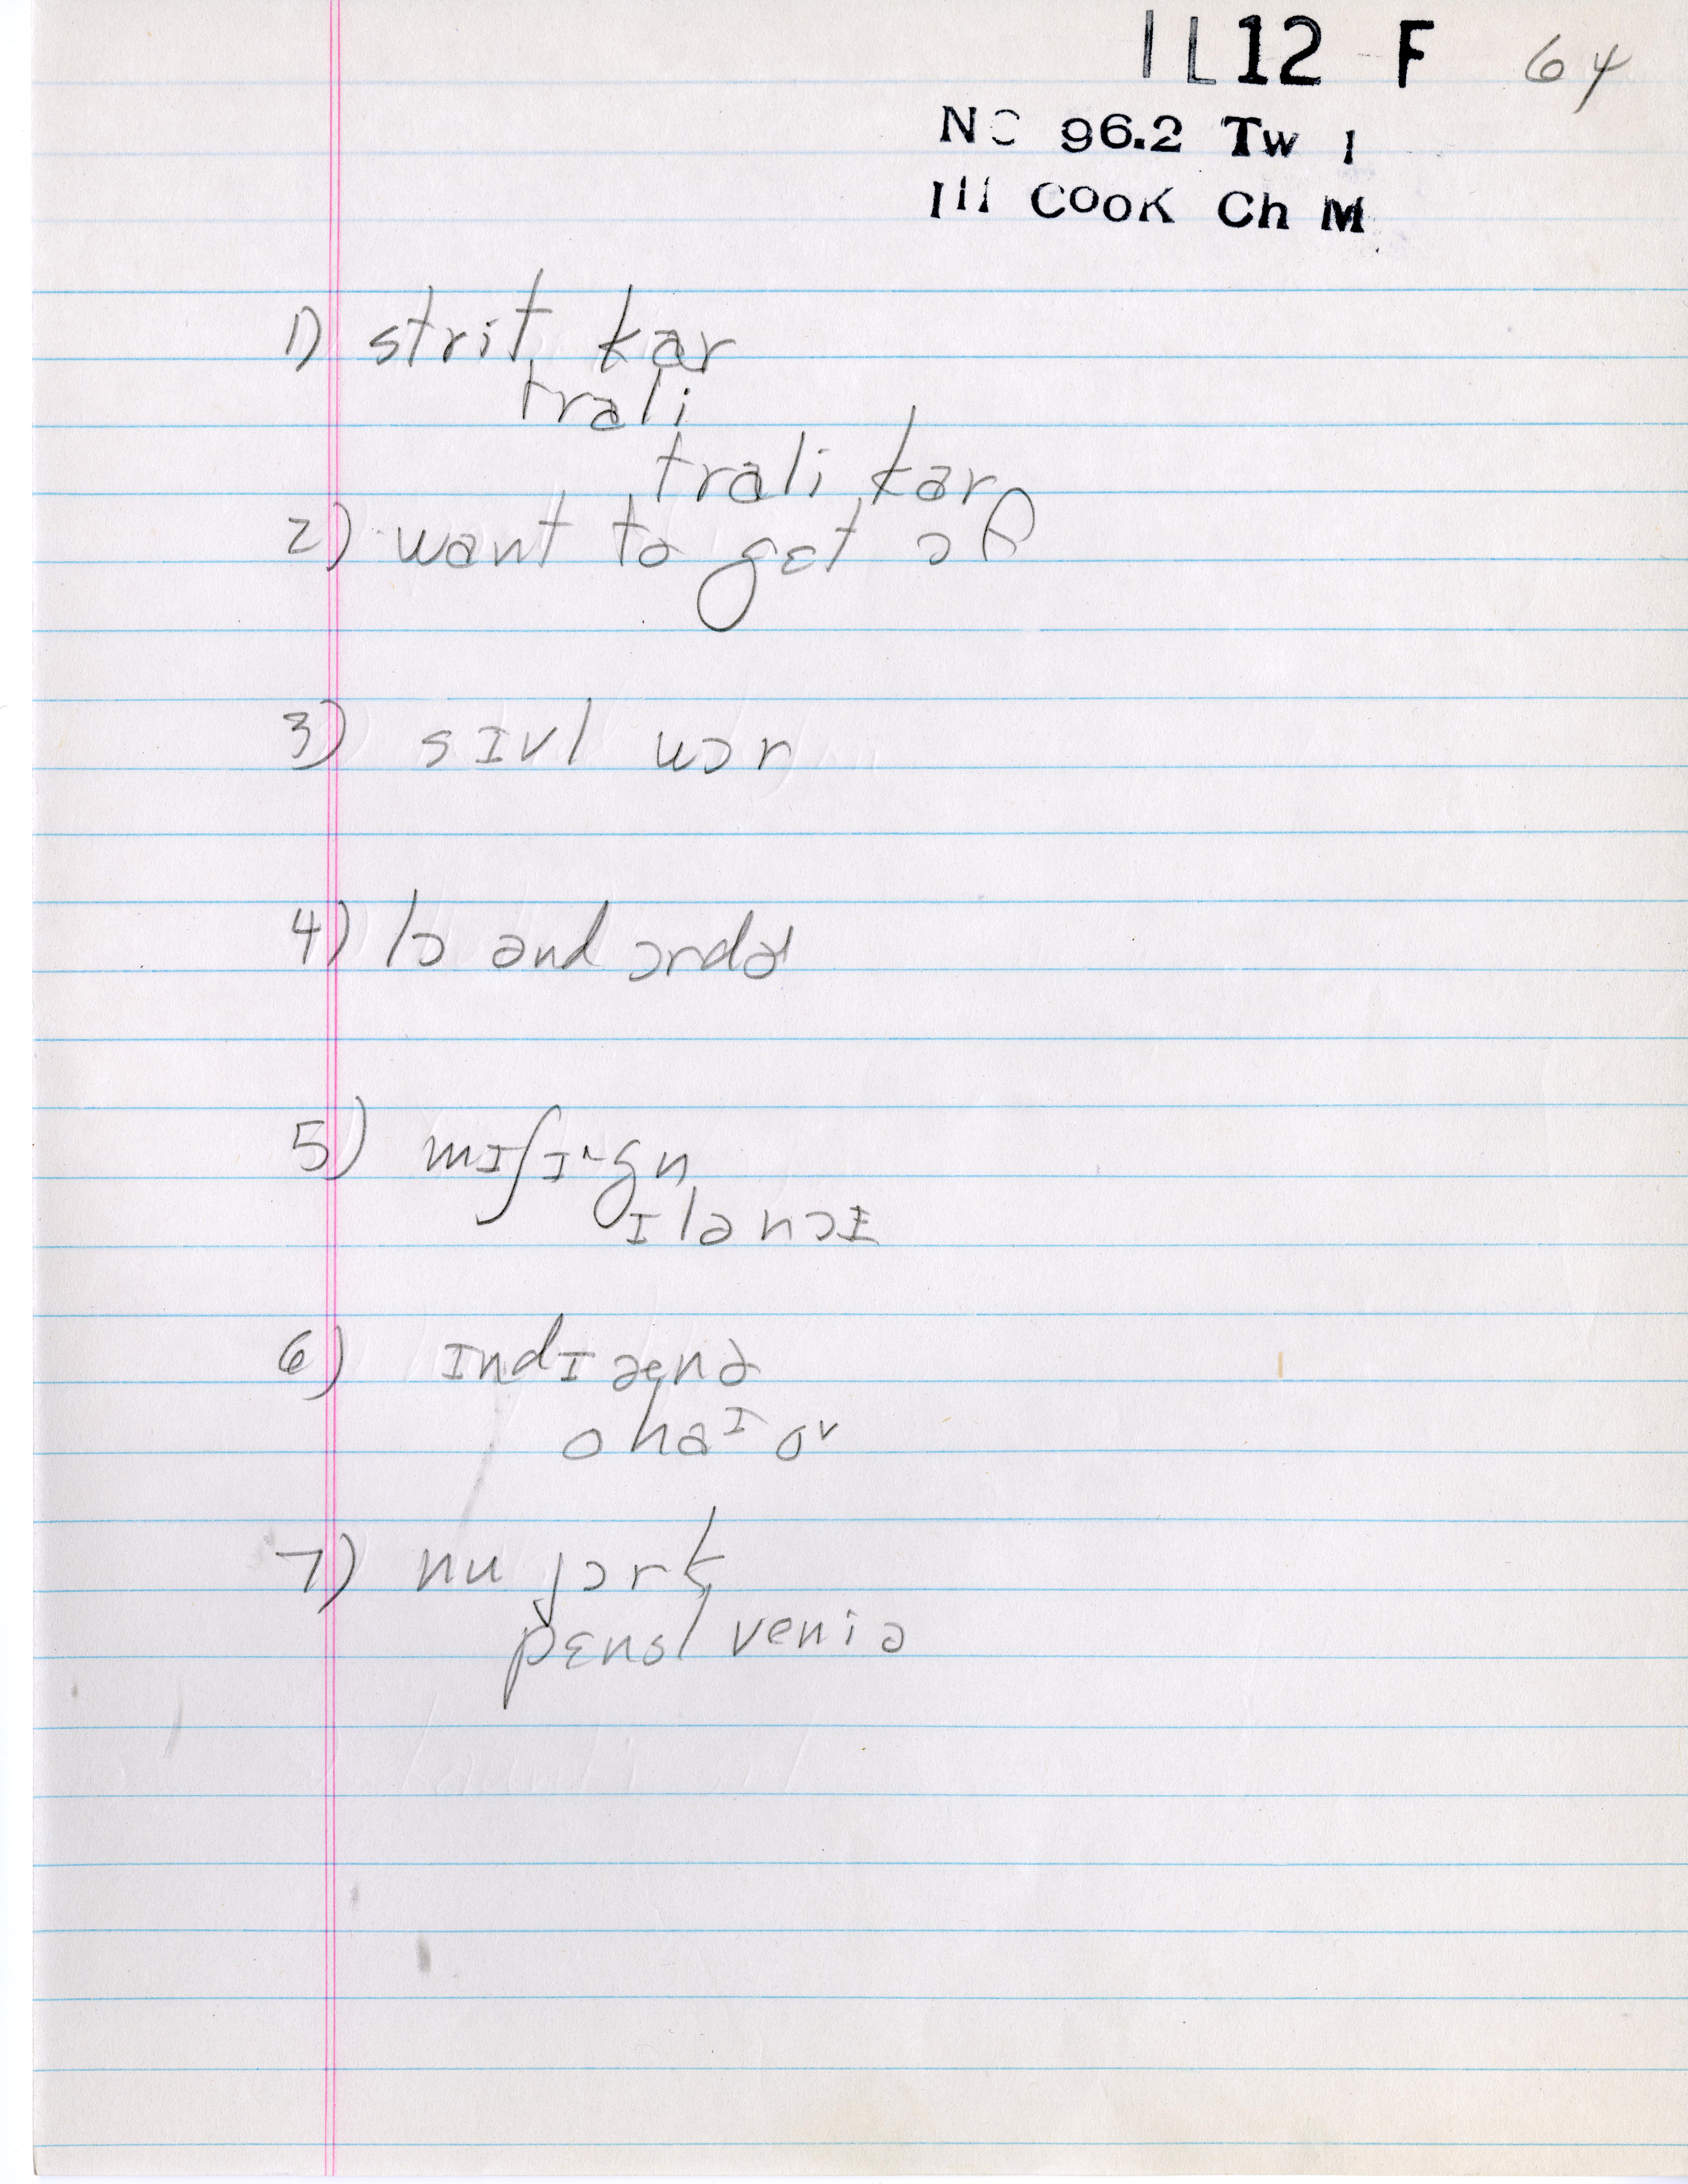 IL12 F 64
NC 96.2 Tw 1
Ill COOK Ch M
1) strit kar
trali
trali kar
2) want tə get ɔf
3) sɪvl wɔr
4) lɔ ənd ɔrdɚ
5) mɪʃɪgn
ɪlənɔɪ
6) ɪndɪænə
ohaɪo
7) nu jɔrk
pɛnsl veniə